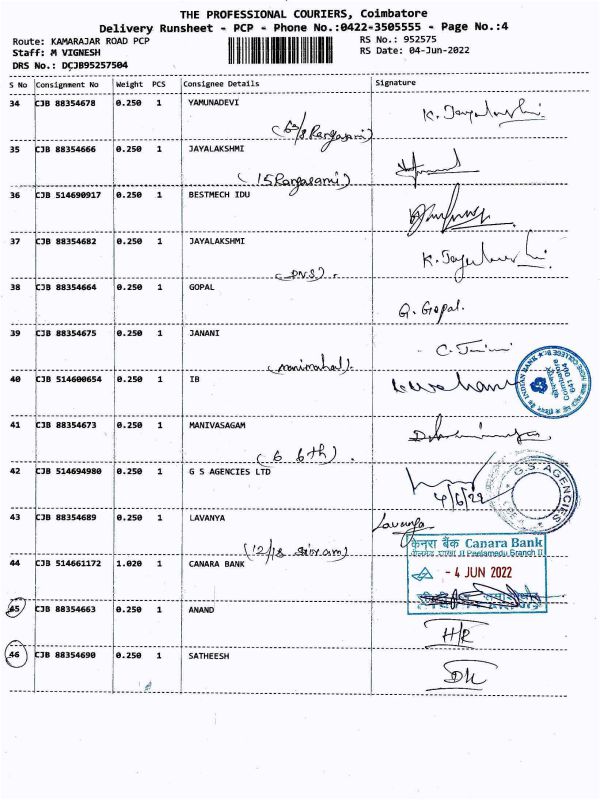 THE PROFESSIONAL COURIERS, Coimbatore
Delivery Runsheet - PCP - Phone No.:0422-3505555 - Page No.:4
Route: KAMARAJAR ROAD PCP RS No.: 952575
Staff: M VIGNESH RS Date: 04-Jun-2022
DRS No.: DCJB95257504
S No Consignment No Weight PCS Consignee Details Signature
34 CJB 88354678 0.250 1 YAMUNADEVI
35 CJB 88354666 0.250 1 JAYALAKSHMI
(15 Rangasami)
36 CJB 514690917 0.250 1 BESTMECH IDU
37 CJB 88354682 0.250 1 JAYALAKSHMI
38 CJB 88354664 0.250 1 GOPAL
G. Gopal.
39 CJB 88354675 0.250 1 JANANI
(manimahal).
40 CJB 514600654 0.250 1 IB
INDIAN BANK
Coimbatore
641 004
41 CJB 88354673 0.250 1 MANIVASAGAM
(6 6th).
42 CJB 514694980 0.250 1 G S AGENCIES LTD
4/6/22
G.S. AGENCIES
43 CJB 88354689 0.250 1 LAVANYA
Lavanya
केनरा बैंक Canara Bank
Peelamedu Branch II
44 CJB 514661172 1.020 1 CANARA BANK
- 4 JUN 2022
45 CJB 88354663 0.250 1 ANAND
H/R
46 CJB 88354690 0.250 1 SATHEESH